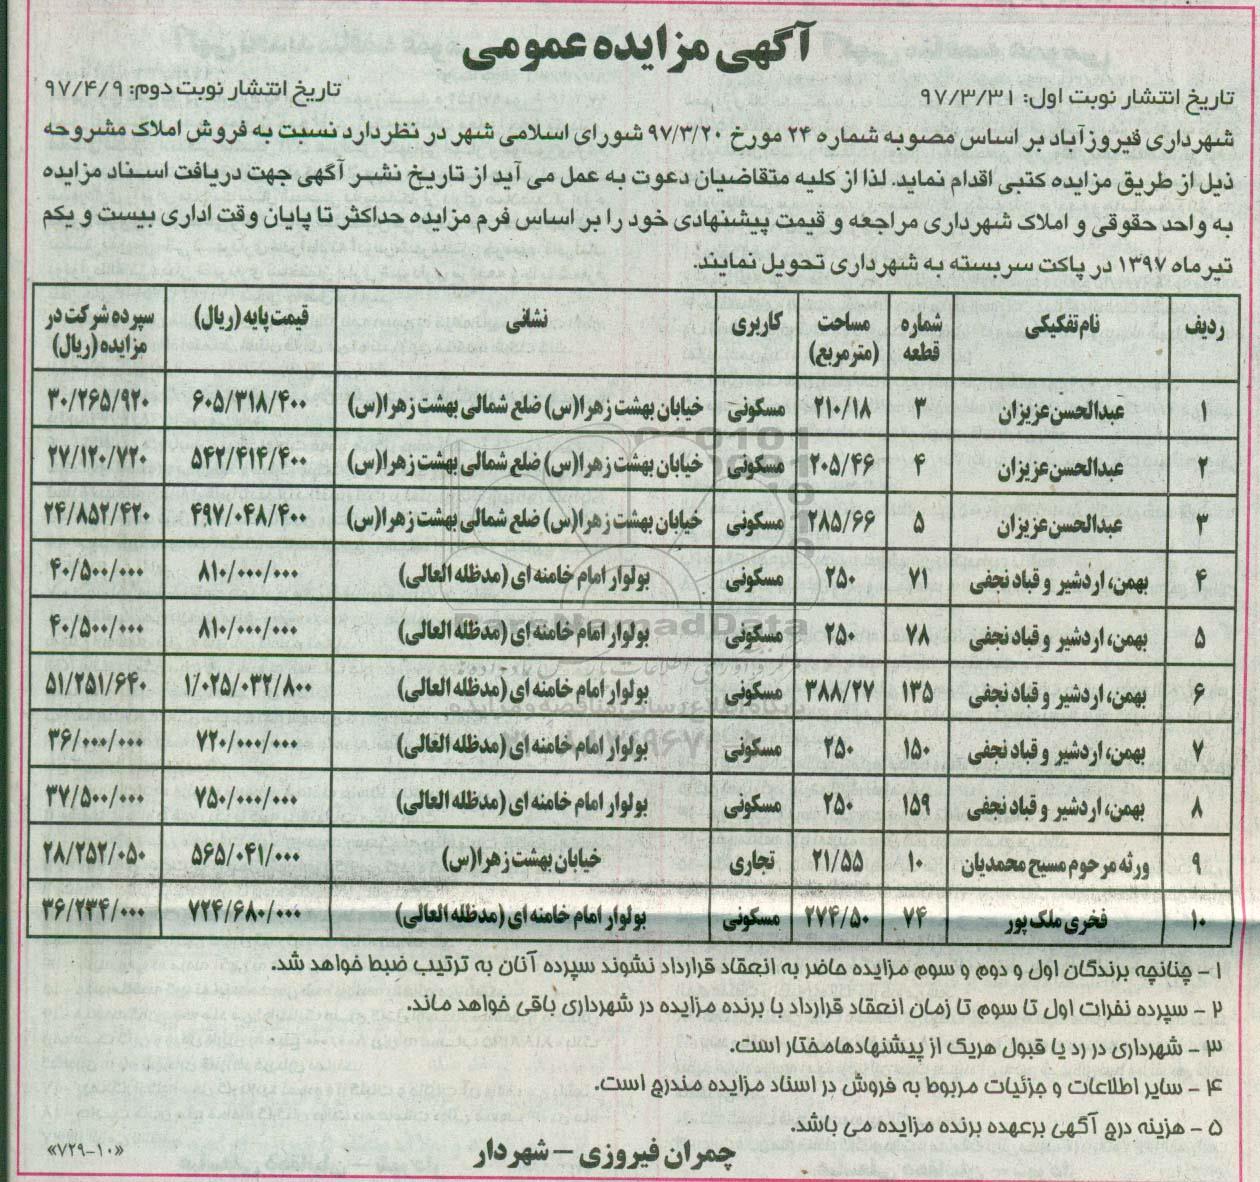 آگهی مزایده عمومی
تاریخ انتشار نوبت اول: ۹۷/۳/۳۱
تاریخ انتشار نوبت دوم: ۹۷/۴/۹
شهرداری فیروزآباد بر اساس مصوبه شماره ۲۴ مورخ ۹۷/۳/۲۰ شورای اسلامی شهر در نظر دارد نسبت به فروش املاک مشروحه
ذیل از طریق مزایده کتبی اقدام نماید. لذا از کلیه متقاضیان دعوت به عمل می آید از تاریخ نشر آگهی جهت دریافت اسناد مزایده
به واحد حقوقی و املاک شهرداری مراجعه و قیمت پیشنهادی خود را بر اساس فرم مزایده حداکثر تا پایان وقت اداری بیست و یکم
تیرماه ۱۳۹۷ در پاکت سربسته به شهرداری تحویل نمایند.
ردیف نام تفکیکی شماره قطعه مساحت (مترمربع) کاربری نشانی قیمت پایه (ریال) سپرده شرکت در مزایده (ریال)
۱ عبدالحسن عزیزان ۳ ۲۱۰/۱۸ مسکونی خیابان بهشت زهرا(س) ضلع شمالی بهشت زهرا(س) ۶۰۵/۳۱۸/۴۰۰ ۳۰/۲۶۵/۹۲۰
۲ عبدالحسن عزیزان ۴ ۲۰۵/۴۶ مسکونی خیابان بهشت زهرا(س) ضلع شمالی بهشت زهرا(س) ۵۴۲/۴۱۴/۴۰۰ ۲۷/۱۲۰/۷۲۰
۳ عبدالحسن عزیزان ۵ ۲۸۵/۶۶ مسکونی خیابان بهشت زهرا(س) ضلع شمالی بهشت زهرا(س) ۴۹۷/۰۴۸/۴۰۰ ۲۴/۸۵۲/۴۲۰
۴ بهمن، اردشیر و قباد نجفی ۷۱ ۲۵۰ مسکونی بولوار امام خامنه ای (مدظله العالی) ۸۱۰/۰۰۰/۰۰۰ ۴۰/۵۰۰/۰۰۰
۵ بهمن، اردشیر و قباد نجفی ۷۸ ۲۵۰ مسکونی بولوار امام خامنه ای (مدظله العالی) ۸۱۰/۰۰۰/۰۰۰ ۴۰/۵۰۰/۰۰۰
۶ بهمن، اردشیر و قباد نجفی ۱۳۵ ۳۸۸/۲۷ مسکونی بولوار امام خامنه ای (مدظله العالی) ۱/۰۲۵/۰۳۲/۸۰۰ ۵۱/۲۵۱/۶۴۰
۷ بهمن، اردشیر و قباد نجفی ۱۵۰ ۲۵۰ مسکونی بولوار امام خامنه ای (مدظله العالی) ۷۲۰/۰۰۰/۰۰۰ ۳۶/۰۰۰/۰۰۰
۸ بهمن، اردشیر و قباد نجفی ۱۵۹ ۲۵۰ مسکونی بولوار امام خامنه ای (مدظله العالی) ۷۵۰/۰۰۰/۰۰۰ ۳۷/۵۰۰/۰۰۰
۹ ورثه مرحوم مسیح محمدیان ۱۰ ۲۱/۵۵ تجاری خیابان بهشت زهرا(س) ۵۶۵/۰۴۱/۰۰۰ ۲۸/۲۵۲/۰۵۰
۱۰ فخری ملک پور ۷۴ ۲۷۴/۵۰ مسکونی بولوار امام خامنه ای (مدظله العالی) ۷۲۴/۶۸۰/۰۰۰ ۳۶/۲۳۴/۰۰۰
۱ - چنانچه برندگان اول و دوم و سوم مزایده حاضر به انعقاد قرارداد نشوند سپرده آنان به ترتیب ضبط خواهد شد.
۲ - سپرده نفرات اول تا سوم تا زمان انعقاد قرارداد با برنده مزایده در شهرداری باقی خواهد ماند.
۳ - شهرداری در رد یا قبول هریک از پیشنهادها مختار است.
۴ - سایر اطلاعات و جزئیات مربوط به فروش در اسناد مزایده مندرج است.
۵ - هزینه درج آگهی برعهده برنده مزایده می باشد.
چمران فیروزی - شهردار
«۷۲۹-۱۰»
ParsNamadData